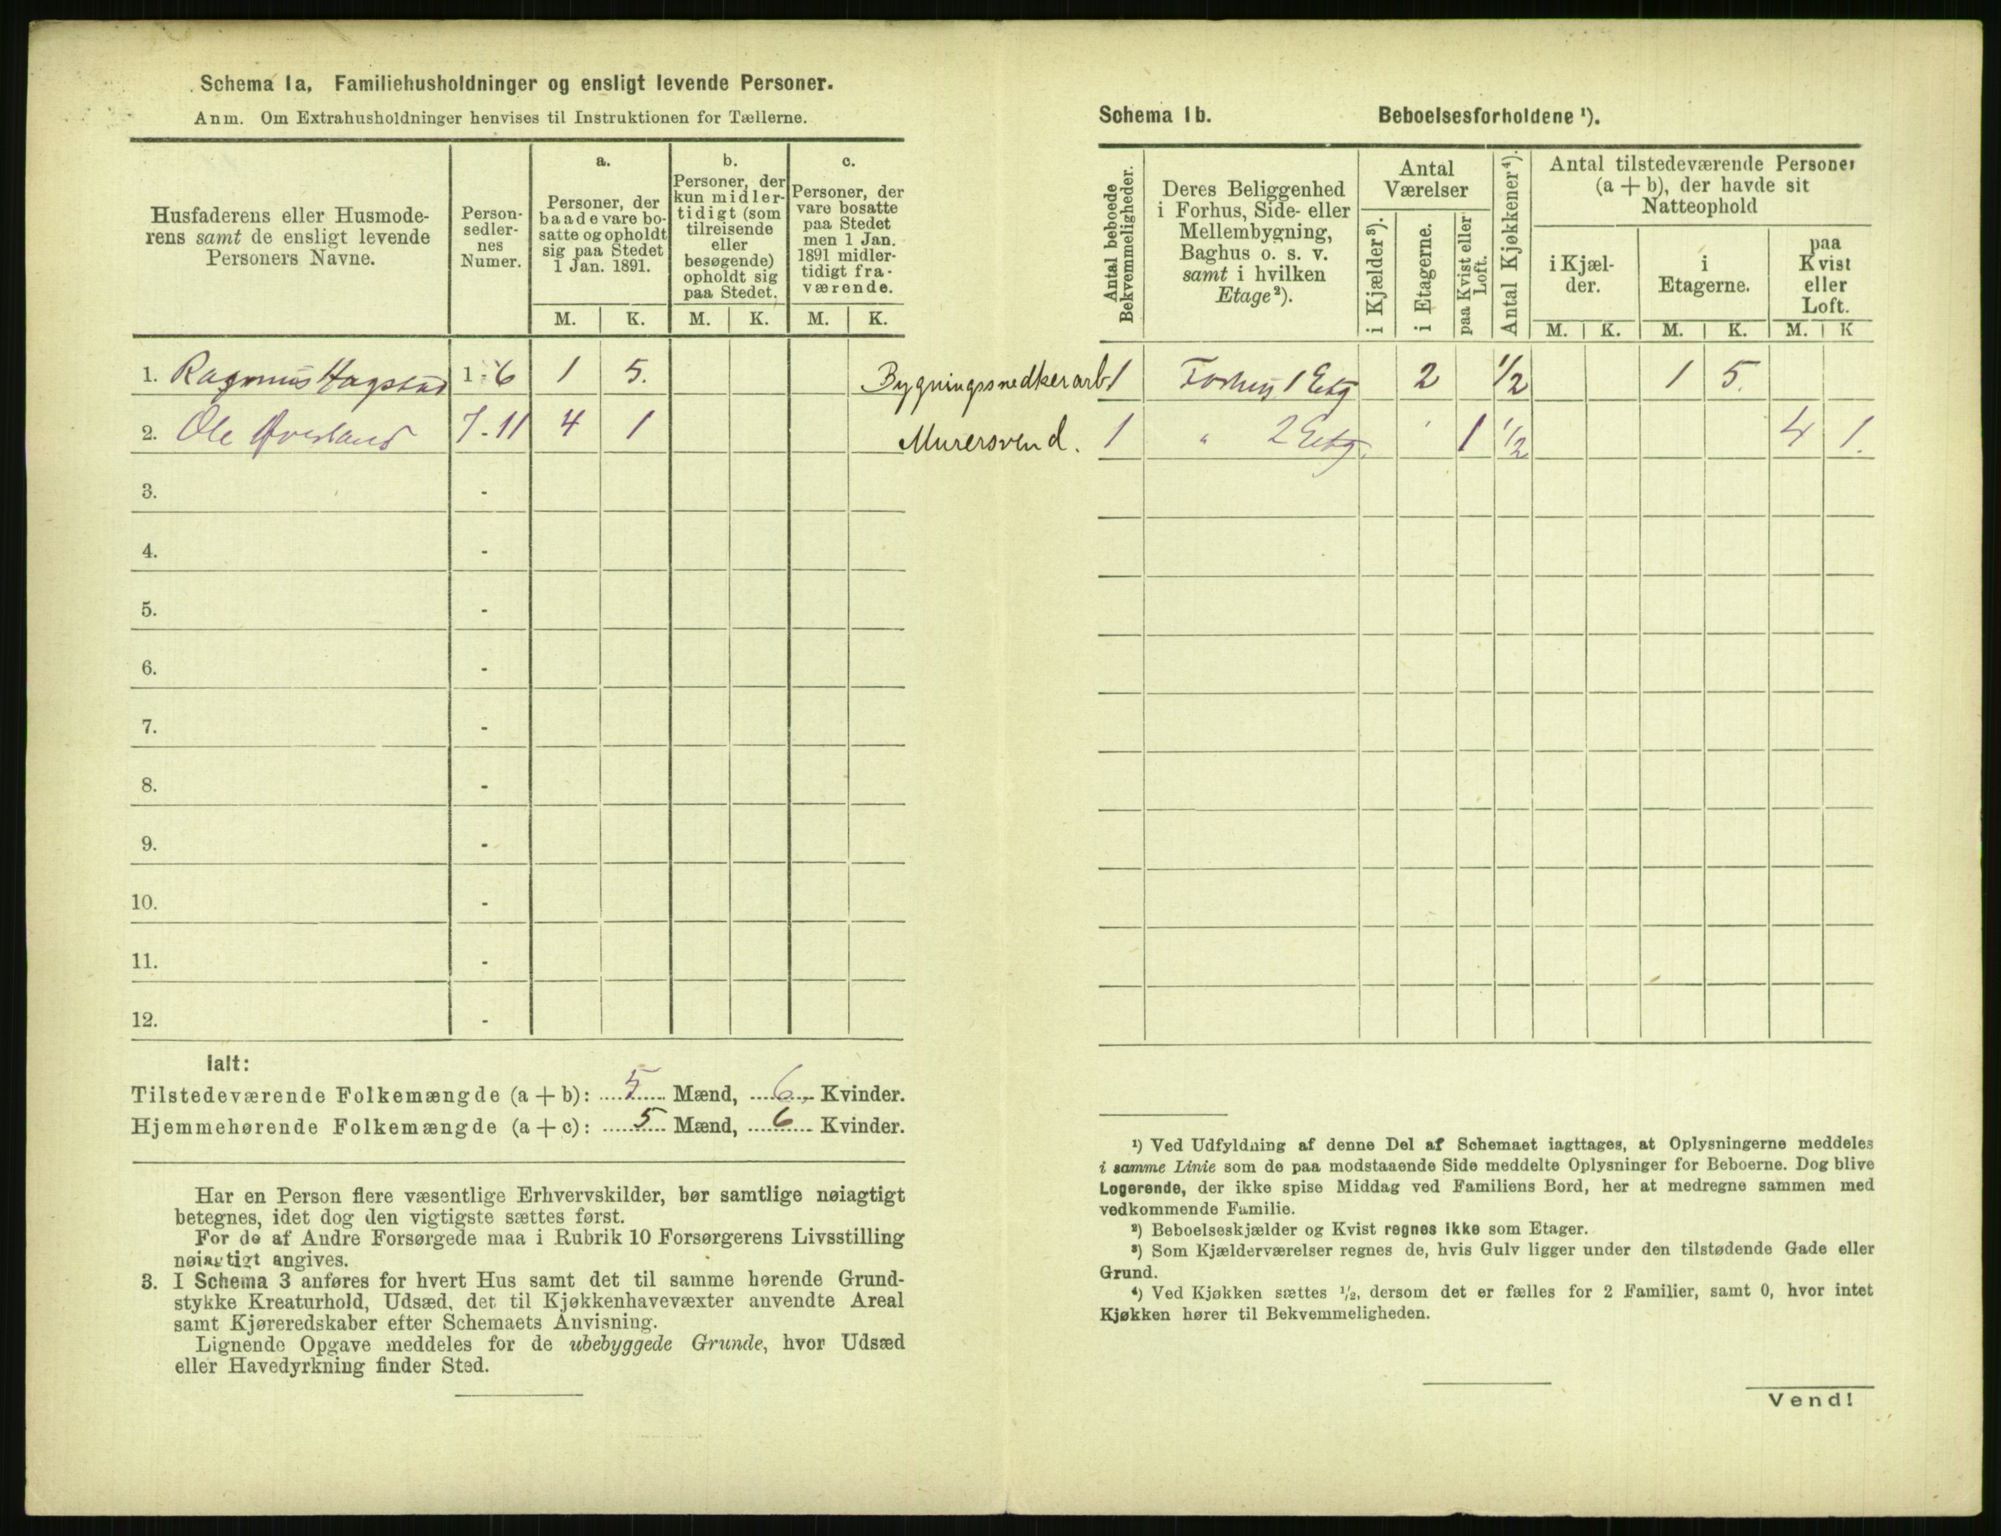 Schema 1a, Familiehusholdninger og ensligt levende Personer.
Anm. Om Extrahusholdninger henvises til Instruktionen for Tællerne.
Husfaderens eller Husmode-
rens samt de ensligt levende
Personers Navne.
Person-
sedler-
nes
Numer.
a.
Personer, der
baade vare bo-
satte og opholdt
sig paa Stedet
1 Jan. 1891.
b.
Personer, der
kun midler-
tidigt (som
tilreisende
eller
besøgende)
opholdt sig
paa Stedet.
c.
Personer, der
vare bosatte
paa Stedet
men 1 Jan.
1891 midler-
tidigt fra-
værende.
M. K. M. K. M. K.
1. Rasmus Hagstad 1-6 1 5. Bygningssnedkerarb
2. Ole Øverland 7-11 4 1 Murersvend.
3. -
4. -
5. -
6. -
7. -
8. -
9. -
10. -
11. -
12. -
Ialt:
Tilstedeværende Folkemængde (a + b): 5 Mænd, 6 Kvinder.
Hjemmehørende Folkemængde (a + c): 5 Mænd, 6 Kvinder.
Har en Person flere væsentlige Erhvervskilder, bør samtlige nøiagtigt
betegnes, idet dog den vigtigste sættes først.
For de af Andre Forsørgede maa i Rubrik 10 Forsørgerens Livsstilling
nøiagtigt angives.
3. I Schema 3 anføres for hvert Hus samt det til samme hørende Grund-
stykke Kreaturhold, Udsæd, det til Kjøkkenhavevæxter anvendte Areal
samt Kjøreredskaber efter Schemaets Anvisning.
Lignende Opgave meddeles for de ubebyggede Grunde, hvor Udsæd
eller Havedyrkning finder Sted.
Schema 1b. Beboelsesforholdene ¹).
Antal beboede
Bekvemmeligheder.
Deres Beliggenhed
i Forhus, Side- eller
Mellembygning,
Baghus o. s. v.
samt i hvilken
Etage²).
Antal
Værelser
i Kjælder³).
i Etagerne.
paa Kvist eller
Loft.
Antal Kjøkkener⁴).
Antal tilstedeværende Personer
(a + b), der havde sit
Natteophold
i Kjæl-
der.
i
Etagerne.
paa
Kvist
eller
Loft.
M. K. M. K. M. K
1 Forhus 1 Etg 2 1/2 1 5.
1 " 2 Etg. ' 1 1/2 4 1.
¹) Ved Udfyldning af denne Del af Schemaet iagttages, at Oplysningerne meddeles
i samme Linie som de paa modstaaende Side meddelte Oplysninger for Beboerne. Dog blive
Logerende, der ikke spise Middag ved Familiens Bord, her at medregne sammen med
vedkommende Familie.
²) Beboelseskjælder og Kvist regnes ikke som Etager.
³) Som Kjælderværelser regnes de, hvis Gulv ligger under den tilstødende Gade eller
Grund.
⁴) Ved Kjøkken sættes ¹/₂, dersom det er fælles for 2 Familier, samt 0, hvor intet
Kjøkken hører til Bekvemmeligheden.
Vend!